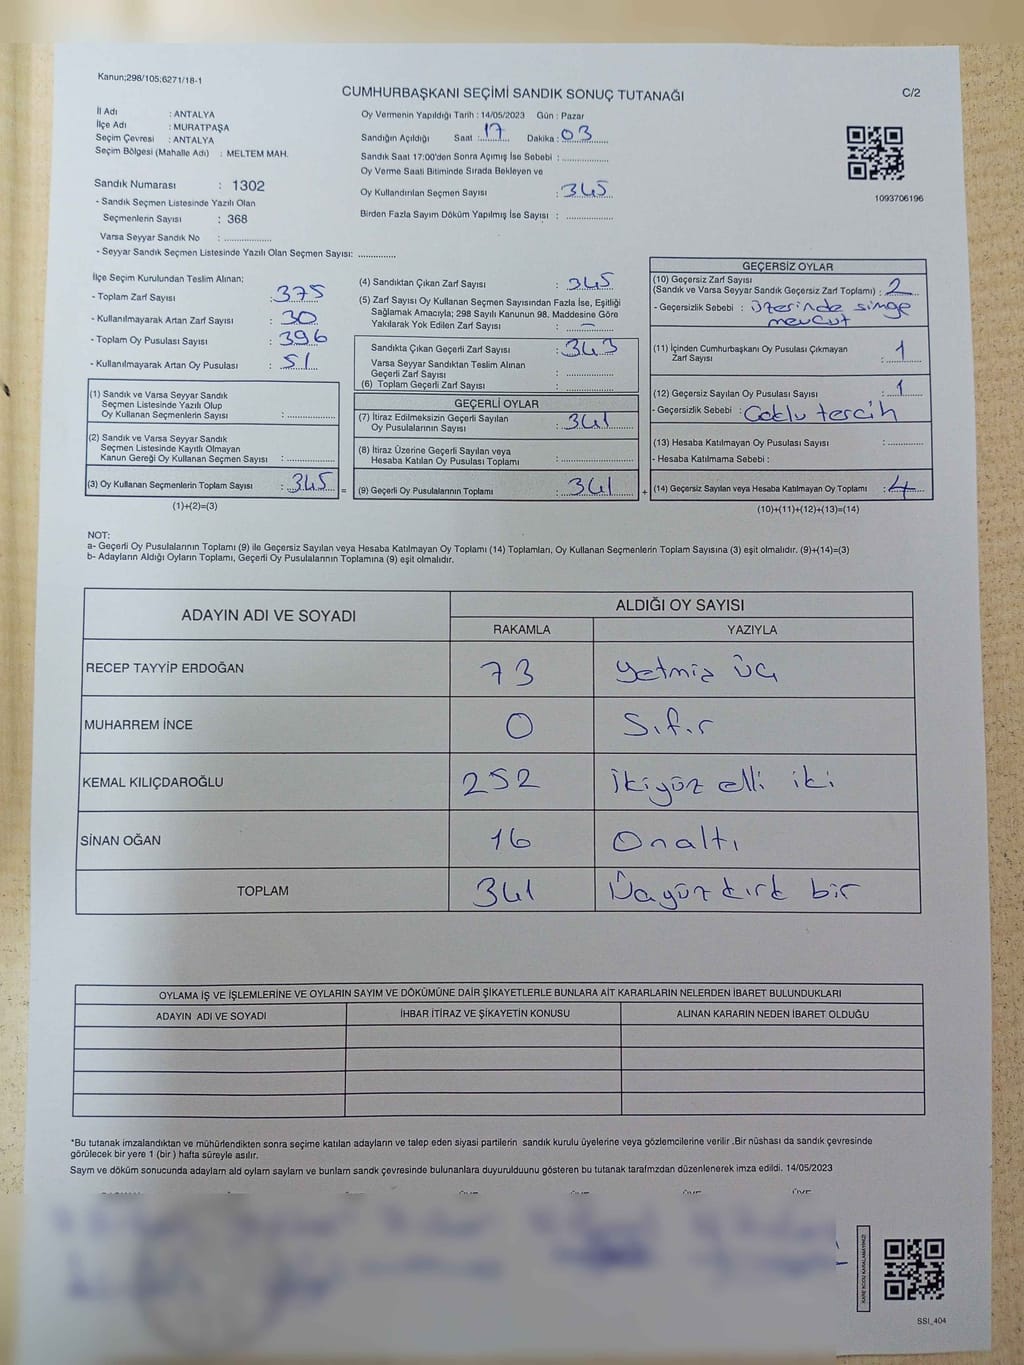 Kanun;298/105;6271/18-1
CUMHURBAŞKANI SEÇİMİ SANDIK SONUÇ TUTANAĞI
C/2
İl Adı : ANTALYA
İlçe Adı : MURATPAŞA
Seçim Çevresi : ANTALYA
Seçim Bölgesi (Mahalle Adı) : MELTEM MAH.
Sandık Numarası : 1302
- Sandık Seçmen Listesinde Yazılı Olan
Seçmenlerin Sayısı : 368
Varsa Seyyar Sandık No : ..................
- Seyyar Sandık Seçmen Listesinde Yazılı Olan Seçmen Sayısı: ..............
Oy Vermenin Yapıldığı Tarih : 14/05/2023 Gün : Pazar
Sandığın Açıldığı Saat : 17 Dakika : 03
Sandık Saat 17:00'den Sonra Açımış İse Sebebi : ..................
Oy Verme Saati Bitiminde Sırada Bekleyen ve
Oy Kullandırılan Seçmen Sayısı : 345
Birden Fazla Sayım Döküm Yapılmış İse Sayısı : ..................
1093706196
İlçe Seçim Kurulundan Teslim Alınan:
- Toplam Zarf Sayısı : 375
- Kullanılmayarak Artan Zarf Sayısı : 30
- Toplam Oy Pusulası Sayısı : 396
- Kullanılmayarak Artan Oy Pusulası : 51
(1) Sandık ve Varsa Seyyar Sandık
Seçmen Listesinde Yazılı Olup
Oy Kullanan Seçmenlerin Sayısı : ..................
(2) Sandık ve Varsa Seyyar Sandık
Seçmen Listesinde Kayıtlı Olmayan
Kanun Gereği Oy Kullanan Seçmen Sayısı : ..................
(3) Oy Kullanan Seçmenlerin Toplam Sayısı : 345 =
(1)+(2)=(3)
(4) Sandıktan Çıkan Zarf Sayısı : 345
(5) Zarf Sayısı Oy Kullanan Seçmen Sayısından Fazla İse, Eşitliği
Sağlamak Amacıyla; 298 Sayılı Kanunun 98. Maddesine Göre
Yakılarak Yok Edilen Zarf Sayısı : –
Sandıkta Çıkan Geçerli Zarf Sayısı : 343
Varsa Seyyar Sandıktan Teslim Alınan
Geçerli Zarf Sayısı : ..................
(6) Toplam Geçerli Zarf Sayısı : ..................
GEÇERLİ OYLAR
(7) İtiraz Edilmeksizin Geçerli Sayılan
Oy Pusulalarının Sayısı : 341
(8) İtiraz Üzerine Geçerli Sayılan veya
Hesaba Katılan Oy Pusulası Toplamı : ..................
(9) Geçerli Oy Pusulalarının Toplamı : 341 +
GEÇERSİZ OYLAR
(10) Geçersiz Zarf Sayısı
(Sandık ve Varsa Seyyar Sandık Geçersiz Zarf Toplamı) : 2
- Geçersizlik Sebebi : üzerinde simge
mevcut
(11) İçinden Cumhurbaşkanı Oy Pusulası Çıkmayan
Zarf Sayısı : 1
(12) Geçersiz Sayılan Oy Pusulası Sayısı : 1
- Geçersizlik Sebebi : Çoklu tercih
(13) Hesaba Katılmayan Oy Pusulası Sayısı : ..................
- Hesaba Katılmama Sebebi :
(14) Geçersiz Sayılan veya Hesaba Katılmayan Oy Toplamı : 4
(10)+(11)+(12)+(13)=(14)
NOT:
a- Geçerli Oy Pusulalarının Toplamı (9) ile Geçersiz Sayılan veya Hesaba Katılmayan Oy Toplamı (14) Toplamları, Oy Kullanan Seçmenlerin Toplam Sayısına (3) eşit olmalıdır. (9)+(14)=(3)
b- Adayların Aldığı Oyların Toplamı, Geçerli Oy Pusulalarının Toplamına (9) eşit olmalıdır.
ADAYIN ADI VE SOYADI ALDIĞI OY SAYISI
RAKAMLA YAZIYLA
RECEP TAYYİP ERDOĞAN 73 Yetmiş üç
MUHARREM İNCE 0 Sıfır
KEMAL KILIÇDAROĞLU 252 İkiyüz elli iki
SİNAN OĞAN 16 Onaltı
TOPLAM 341 Üçyüz kırk bir
OYLAMA İŞ VE İŞLEMLERİNE VE OYLARIN SAYIM VE DÖKÜMÜNE DAİR ŞİKAYETLERLE BUNLARA AİT KARARLARIN NELERDEN İBARET BULUNDUKLARI
ADAYIN ADI VE SOYADI İHBAR İTİRAZ VE ŞİKAYETİN KONUSU ALINAN KARARIN NEDEN İBARET OLDUĞU
*Bu tutanak imzalandıktan ve mühürlendikten sonra seçime katılan adayların ve talep eden siyasi partilerin sandık kurulu üyelerine veya gözlemcilerine verilir .Bir nüshası da sandık çevresinde
görülecek bir yere 1 (bir ) hafta süreyle asılır.
Saym ve döküm sonucunda adaylam ald oylam saylam ve bunlam sandk çevresinde bulunanlara duyurulduunu gösteren bu tutanak tarafmzdan düzenlenerek imza edildi. 14/05/2023
SSI_404